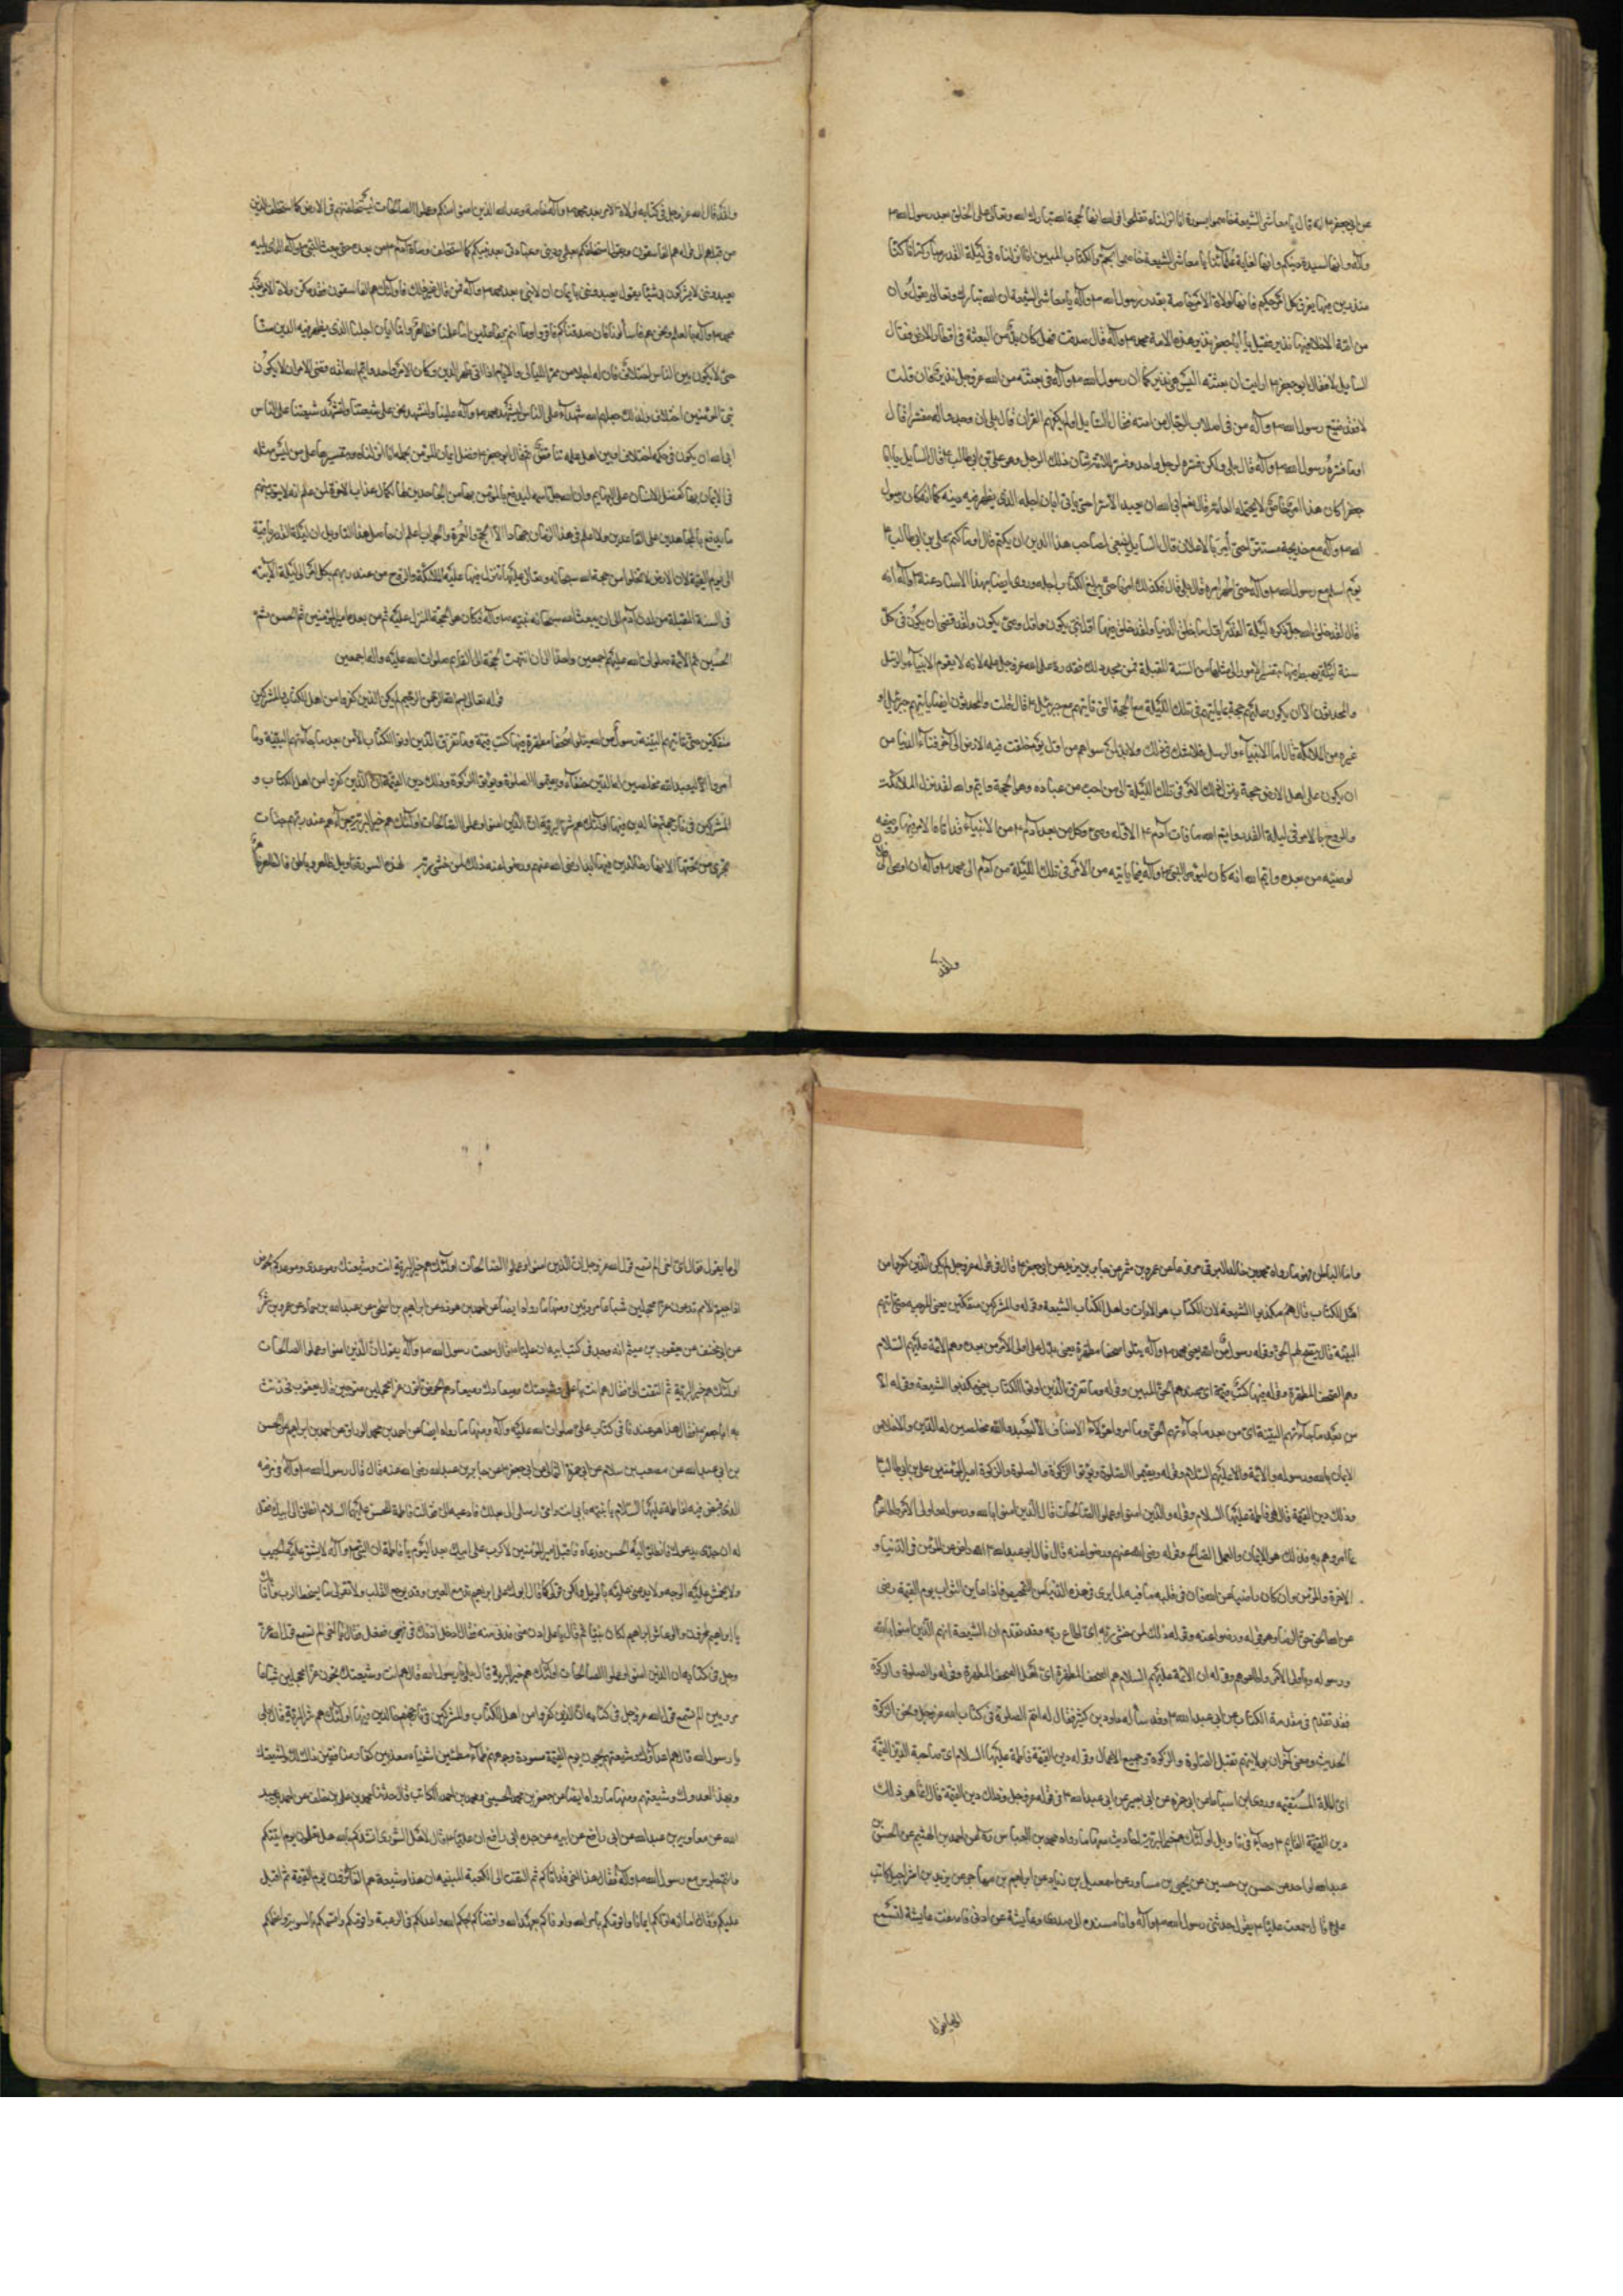 عن ابي جعفر ع انه قال يا معاشر الشيعة خاصموا بسورة انا انزلناه تفلحوا فو الله انها لحجة الله تبارك وتعالى على الخلق بعد رسول الله ص
وآله وانها لسيدة دينكم وانها لغاية علمنا يا معاشر الشيعة خاصموا بحم والكتاب المبين انا انزلناه في ليلة القدر
منذرين فيها يفرق كل امر حكيم فانها لولاة الامر خاصة بعد رسول الله ص وآله يا معاشر الشيعة ان الله تبارك وتعالى يقول وان
من امة الا خلا فيها نذير فقيل يا ابا جعفر نذير هذه الامة محمد ص وآله قال صدقت فهل كان بد من البعثة في اقطار الارض فقال
السايل لا فقال ابو جعفر ع ارايت ان بعثته اليس نذيره كما ان رسول الله ص وآله في بعثته من الله عز وجل نذير قال
لا فقد ضيع رسول الله ص وآله من في اصلاب الرجال من امته فقال السايل اولم يكفهم القران قال بلى ان وجدوا له مفسرا قال
اوما فسره رسول الله ص وآله قال بلى ولكن فسره لرجل واحد وفسر للامة شان ذلك الرجل وهو علي بن ابي طالب ع قال السايل يا ابا
جعفر كان هذا الامر خاص لا يحتمله العامة قال نعم ابى الله ان يعبد الا سرا حتى ياتي ابان اجله الذي يظهر فيه دينه كما انه كان رسول
الله ص وآله مع خديجة مستترا حتى أمر بالاعلان قال السايل ينبغي لصاحب هذا الدين ان يكتم قال اوما كتم علي بن ابي طالب ع
يوم اسلم مع رسول الله ص وآله حتى اظهر امره قال بلى قال فكذلك امرنا حتى يبلغ الكتاب اجله وروى ايضا بهذا الاسناد عنه ع انه
قال لقد خلق الله جل ذكره ليلة القدر اول ما خلق الدنيا ولقد خلق فيها اول نبي يكون واول وصي يكون ولقد قضى ان يكون في كل
سنة ليلة يهبط فيها بتفسير الامور الى مثلها من السنة المقبلة فمن جحد ذلك فقد رد على الله عز وجل علمه لانه لا يقوم الانبياء والرسل
والمحدثون الا ان يكون عليهم حجة بما ياتيهم في تلك الليلة مع الحجة التي ياتيهم مع جبرئيل ع قال قلت والمحدثون ايضا ياتيهم جبرئيل او
غيره من الملائكة قال اما الانبياء والرسل فلا شك في ذلك ولا بد لمن سواهم من اول يوم خلقت فيه الارض الى آخر فناء الدنيا من
ان يكون على اهل الارض حجة ينزل ذلك الامر في تلك الليلة الى من احب من عباده وهو الحجة وايم الله لقد نزل الملائكة
والروح بالامر في ليلة القدر على آدم وايم الله ما مات آدم ع الا وله وصي وكل من بعد آدم ع من الانبياء قد اتاه الامر فيها ووصفه
لوصيه من بعده وايم الله انه كان ليؤمر النبي ص وآله فيما ياتيه من الامر في تلك الليلة من آدم الى محمد ص وآله ان اوص الى فلان
ولقد
ولقد قال الله عز وجل في كتابه لولاة الامر بعد محمد ص وآله خاصة وعد الله الذين امنوا منكم وعملوا الصالحات ليستخلفنهم في الارض كما استخلف الذين
من قبلهم الى قوله هم الفاسقون يقول استخلفكم بعلمي وديني وعبادتي بعد نبيكم كما استخلف وصاة آدم ع من بعده حتى يبعث النبي الذي يليه
يعبدونني لا يشركون بي شيئا يقول يعبدونني بايمان ان لا نبي بعد محمد ص وآله فمن قال غير ذلك فاولئك هم الفاسقون فقد مكن ولاة الامر بعد
محمد ص وآله بالعلم ونحن هم فاسألونا فان صدقناكم فاقروا وما انتم بفاعلين اما علمنا فظاهر واما ابان اجلنا الذي يظهر فيه الدين منا
حتى لا يكون بين الناس اختلاف فان له اجلا من ممر الليالي والايام اذا اتى ظهر الدين وكان الامر واحدا وايم الله لقد قضى الامر ان لا يكون
بين المؤمنين اختلاف ولذلك جعلهم الله شهداء على الناس ليشهد محمد ص وآله علينا ولنشهد نحن على شيعتنا ولتشهد شيعتنا على الناس
ابى الله ان يكون في حكمه اختلاف او بين اهل علمه تناقض ثم قال ابو جعفر ع فضل ايمان المؤمن بحمله انا انزلناه وبتفسيرها على من ليس مثله
في الايمان بها كفضل الانسان على البهايم وان الله جل ثناؤه ليدفع بالمؤمن بها عن الجاحدين لها لكمال عذاب الآخرة لمن علم انه لا يتوب منهم
ما يدفع بالمجاهدين على القاعدين ولا اعلم في هذا الزمان جهادا الا الحج والعمرة والجوار اعلم ان حاصل هذا التاويل ان ليلة القدر باقية
الى يوم القيمة لان الارض لا تخلوا من حجة الله سبحانه وتعالى عليها تنزل فيها عليه الملائكة والروح من عند ربهم بكل امر الى ليلة الآتية
في السنة المقبلة من لدن آدم الى ان يبعث الله سبحانه نبيه ص وآله فكان هو الحجة المنزل عليه ثم من بعده امير المؤمنين ثم الحسن ثم
الحسين ثم الائمة صلوات الله عليهم اجمعين واحدا الى ان انتهت الحجة الى القايم صلوات الله عليه وآله اجمعين
قوله تعالى بسم الله الرحمن الرحيم لم يكن الذين كفروا من اهل الكتاب والمشركين
منفكين حتى تاتيهم البينة رسول من الله يتلوا صحفا مطهرة فيها كتب قيمة وما تفرق الذين اوتوا الكتاب الا من بعد ما جاءتهم البينة وما
امروا الا ليعبدوا الله مخلصين له الدين حنفاء ويقيموا الصلوة ويؤتوا الزكوة وذلك دين القيمة ان الذين كفروا من اهل الكتاب و
المشركين في نار جهنم خالدين فيها اولئك هم شر البرية ان الذين امنوا وعملوا الصالحات اولئك هم خير البرية جزاؤهم عند ربهم جنات
تجري من تحتها الانهار خالدين فيها ابدا رضي الله عنهم ورضوا عنه ذلك لمن خشي ربه لهذه السورة تاويل ظاهر وباطن فالظاهر ظاهر
واما الباطن فهو ما رواه محمد بن خالد البرقي مرفوعا عن عمرو بن شمر عن جابر بن يزيد عن ابي جعفر ع قال في قوله عز وجل لم يكن الذين كفروا من
اهل الكتاب قال هم مكذبوا الشيعة لان الكتاب هو الايات واهل الكتاب الشيعة وقوله والمشركين منفكين يعني المرجئة حتى تاتيهم
البينة قال يتضح لهم الحق وقوله رسول من الله يعني محمد ص وآله يتلوا صحفا مطهرة يعني يدل على اولي الامر من بعده وهم الائمة عليهم السلام
وهم الصحف المطهرة وقوله فيها كتب قيمة اي عندهم الحق المبين وقوله وما تفرق الذين اوتوا الكتاب يعني مكذبوا الشيعة وقوله الا
من بعد ما جاءتهم البينة اي من بعد ما جاءتهم الحق وما امروا هؤلاء الاصناف الا ليعبدوا الله مخلصين له الدين والاخلاص
الايمان بالله ورسوله والائمة عليهم السلام وقوله ويقيموا الصلوة ويؤتوا الزكوة فالصلوة والزكوة امير المؤمنين علي بن ابي طالب
وذلك دين القيمة قال هي فاطمة عليها السلام وقوله والذين امنوا وعملوا الصالحات قال الذين امنوا بالله ورسوله واولي الامر واطاعوهم
بما امروهم به فذلك هو الايمان والعمل الصالح وقوله رضي الله عنهم ورضوا عنه قال قال ابو عبد الله ع الله راض عن المؤمن في الدنيا و
الاخرة والمؤمن وان كان راضيا عن الله فان في قلبه ما فيه لما يرى في هذه الدنيا من التمحيص فاذا عاين الثواب يوم القيمة رضي
عن الله الحق حق الرضا وهو قوله ورضوا عنه وقوله ذلك لمن خشي ربه اي اطاع ربه وقد تقدم ان الشيعة انهم الذين امنوا بالله
ورسوله وباولي الامر واطاعوهم وقوله ان الائمة عليهم السلام هم الصحف المطهرة اي اهل الصحف المطهرة وقوله والصلوة والزكوة
فقد تقدم في مقدمة الكتاب عن ابي عبد الله ع وقد سأله داود بن كثير فقال له انتم الصلوة في كتاب الله عز وجل ونحن الزكوة
الحديث ومعنى آخر ان بولايتهم تقبل الصلوة والزكوة وجميع الاعمال وقوله دين القيمة فاطمة عليها السلام اي صاحبة الدين القيمة
اي الملة المستقيمة وروى ابن اسباط عن ابي حمزة عن ابي بصير عن ابي عبد الله ع في قوله عز وجل وذلك دين القيمة قال انما هو ذلك
دين القيمة القايم ع وجاء في تاويل اولئك هم خير البرية احاديث منها ما رواه محمد بن العباس ره عن احمد بن الهيثم عن الحسن بن
عبد الواحد عن حسن بن حسين عن يحيى بن مساور عن اسمعيل بن زياد عن ابراهيم بن مهاجر عن يزيد بن شراحيل كاتب
علي ع قال سمعت عليا ع يقول حدثني رسول الله ص وآله وانا مسنده الى صدري وعايشة عن اذني فاصغت عايشة لتسمع
الى ما يقول
الى ما يقول فقال اي اخي الم تسمع قول الله عز وجل ان الذين امنوا وعملوا الصالحات اولئك هم خير البرية انت وشيعتك وموعدي وموعدكم الحوض
اذا جيئت الامم تدعون غرا محجلين شباعا مرويين ومنها ما رواه ايضا عن احمد بن هوذة عن ابراهيم بن اسحق عن عبد الله بن حماد عن عمرو بن شمر
عن ابي مخنف عن يعقوب بن ميثم انه وجد في كتب ابيه ان عليا ع قال سمعت رسول الله ص وآله يقول ان الذين امنوا وعملوا الصالحات
اولئك هم خير البرية ثم التفت الي فقال هم انت يا علي وشيعتك وميعادك وميعادهم الحوض تاتون غرا محجلين متوجين قال يعقوب فحدثت
به ابا جعفر ع فقال هكذا هو عندنا في كتاب علي صلوات الله عليه وآله ومنها ما رواه ايضا عن احمد بن محمد الوراق عن احمد بن ابراهيم عن الحسن
بن ابي عبد الله عن مصعب بن سلام عن ابي حمزة الثمالي عن ابي جعفر ع عن جابر بن عبد الله رضي الله عنه قال قال رسول الله ص وآله في مرضه
الذي قبض فيه لفاطمة عليها السلام يا بنية بابي انت وامي ارسلي الى بعلك فادعيه لي فقالت فاطمة للحسن عليهما السلام انطلق الى ابيك فقل
له ان جدي يدعوك فانطلق اليه الحسن فدعاه فاقبل امير المؤمنين لا كرب على ابيك بعد اليوم يا فاطمة ان النبي ص وآله لا يشق عليه الجيب
ولا يخمش عليه الوجه ولا يدعى عليه بالويل ولكن قولي كما قال ابوك على ابراهيم تدمع العين وقد يوجع القلب ولا نقول ما يسخط الرب وانا بك
يا ابراهيم لمحزونون ولو عاش ابراهيم لكان نبيا ثم قال يا علي ادن مني فدنى منه فقال ادخل اذنك في فمي ففعل فقال يا اخي الم تسمع قول الله عز
وجل في كتابه ان الذين امنوا وعملوا الصالحات اولئك هم خير البرية قال بلى يا رسول الله قال هم انت وشيعتك يجيئون غرا محجلين شباعا
مرويين الم تسمع قول الله عز وجل في كتابه ان الذين كفروا من اهل الكتاب والمشركين في نار جهنم خالدين فيها اولئك هم شر البرية قال بلى
يا رسول الله قال هم اعداؤك وشيعتهم يجيئون يوم القيمة مسودة وجوههم ظماء مظمئين اشقياء معذبين كفارا منافقين ذلك لك ولشيعتك
وهذا لعدوك وشيعتهم ومنها ما رواه ايضا عن جعفر بن محمد الحسيني ومحمد بن احمد الكاتب قال حدثنا محمد بن علي بن خلف عن احمد بن عبد
الله عن معاوية بن عبد الله عن ابي رافع عن ابيه عن جده ابي رافع ان عليا ع قال لاهل الشورى انشدكم بالله هل تعلمون يوم اتيتكم
وانتم جلوس مع رسول الله ص وآله فقال هذا اخي قد اتاكم ثم التفت الى الكعبة المبنية ان هذا وشيعته هم الفائزون يوم القيمة ثم اقبل
عليكم وقال اما انه اولكم ايمانا واقومكم بامر الله واوفاكم بعهد الله واقضاكم بحكم الله واعدلكم في الرعية واقومكم واقسمكم بالسوية واعظمكم